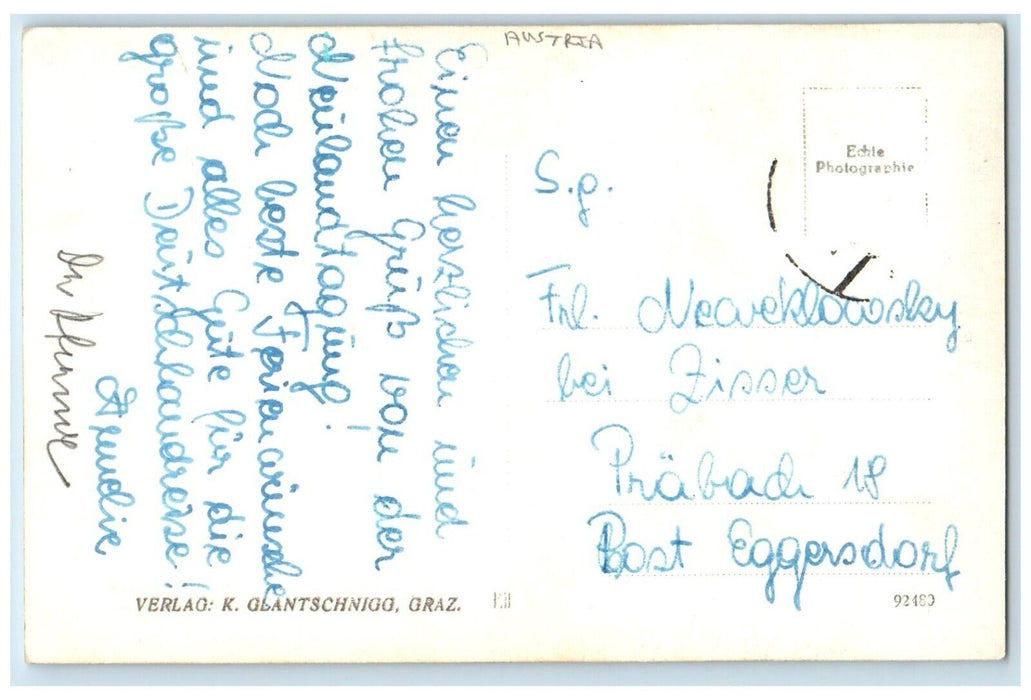 AUSTRIA
Einen herzlichen und
frohen Gruß von der
Neulandtagung!
Noch beste Ferienwünsche
und alles Gute für die
große Deutschlandreise!
S.g.
Frl. Neweklowsky
bei Zisser
Präbach 18
Post Eggersdorf
Echte
Photographie
VERLAG: K. GLANTSCHNIGG, GRAZ.
92480